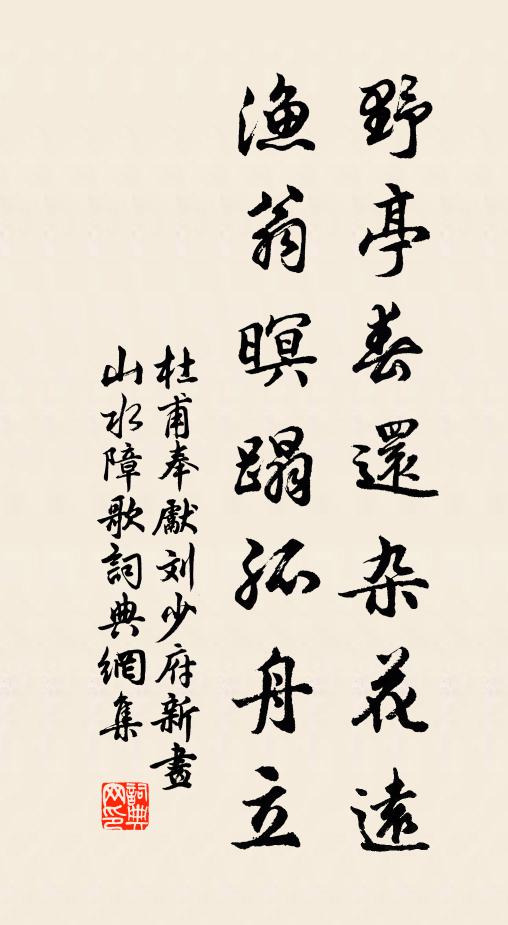 野亭春還杂花遠
漁翁暝蹋孤舟立
杜甫奉獻刘少府新畫
山水障歌詞典網集
詞典
网印